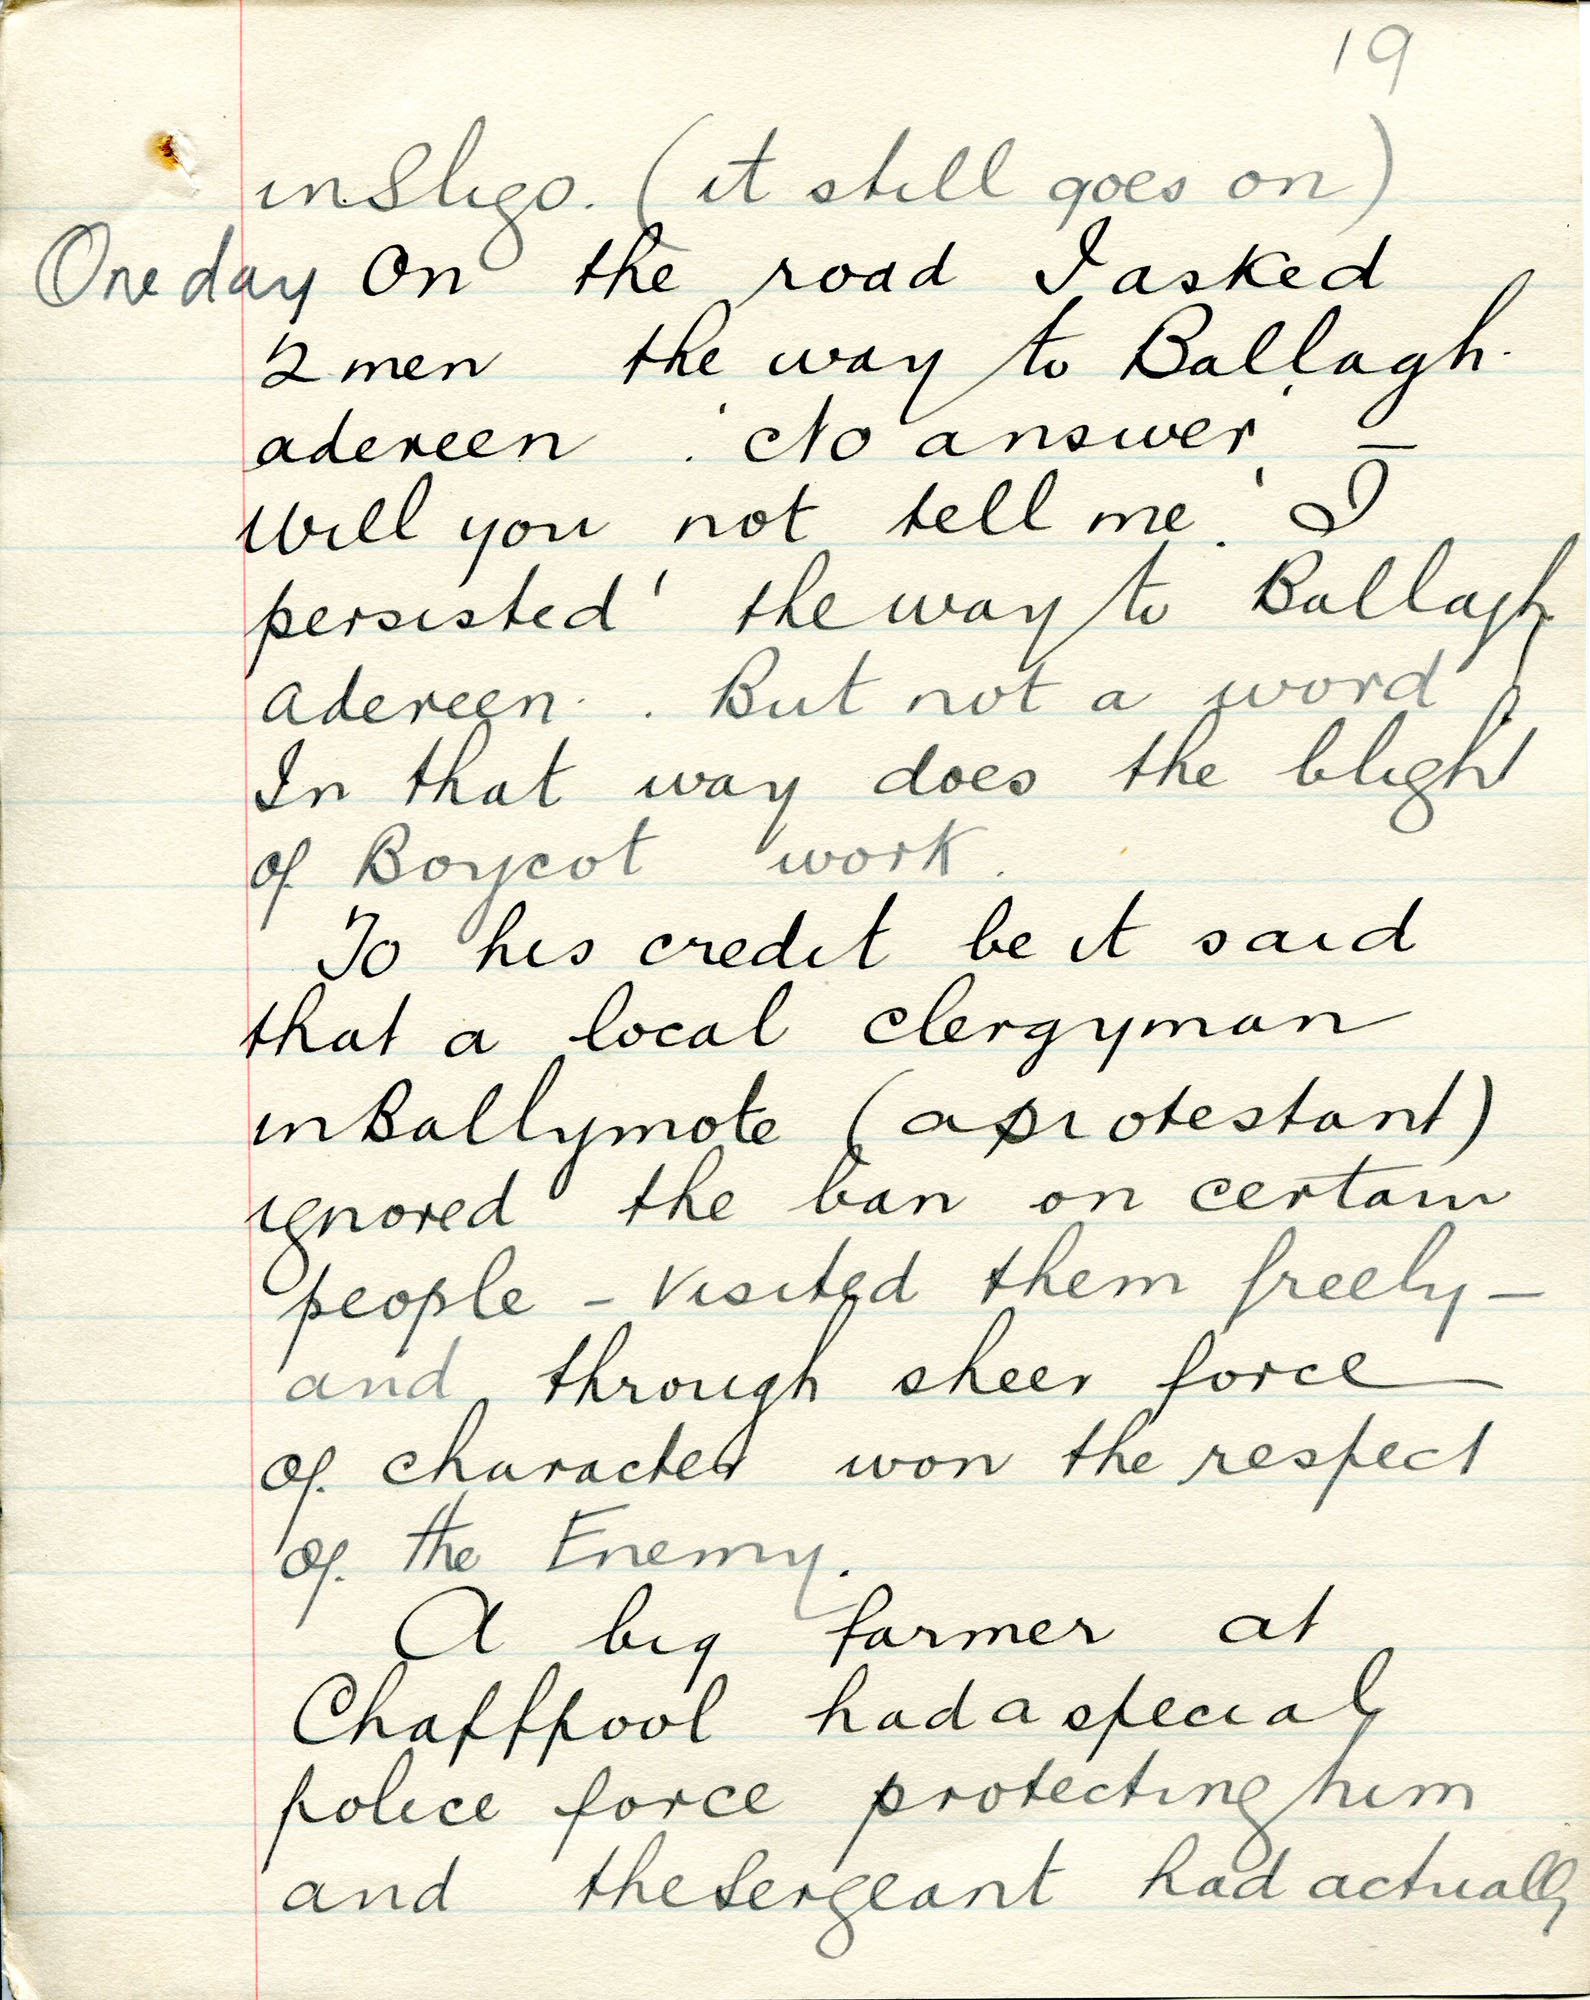 19
in Sligo. (it still goes on)
One day On the road I asked
2 men the way to Ballagh-
adereen. 'No answer' —
Will you not tell me.' I
persisted ' the way to Ballagh
adereen. . But not a word
In that way does the blight
of Boycot work.
To his credit be it said
that a local clergyman
in Ballymote (a protestant)
ignored the ban on certain
people – visited them freely –
and through sheer force
of character won the respect
of the Enemy.
A big farmer at
Chaffpool had a special
police force protecting him
and the Sergeant had actually